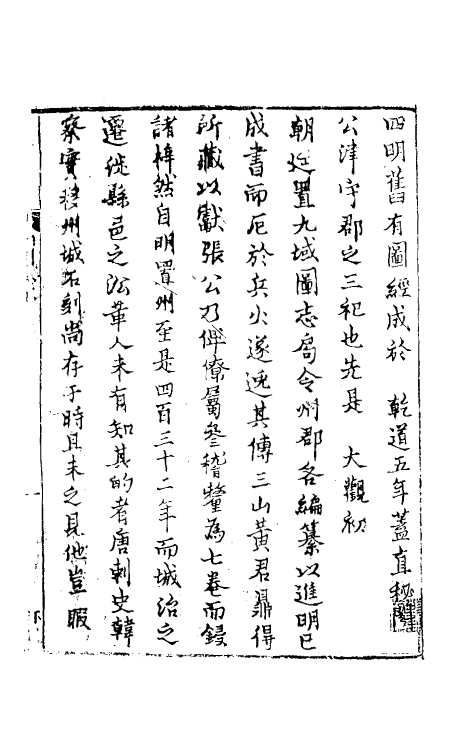 四明舊有圖經成於　乾道五年蓋直秘閣
公津守郡之三祀也先是　大觀初
朝廷置九域圖志局令州郡各編纂以進明已
成書而厄於兵火遂逸其傳三山黃君鼎得
所藏以獻張公乃俾僚屬參稽釐為七卷而鋟
諸梓然自明置州至是四百三十二年而城治之
遷徙縣邑之沿革人未有知其的者唐刺史韓
察實移州城石刻尚存于時且未之見他豈暇